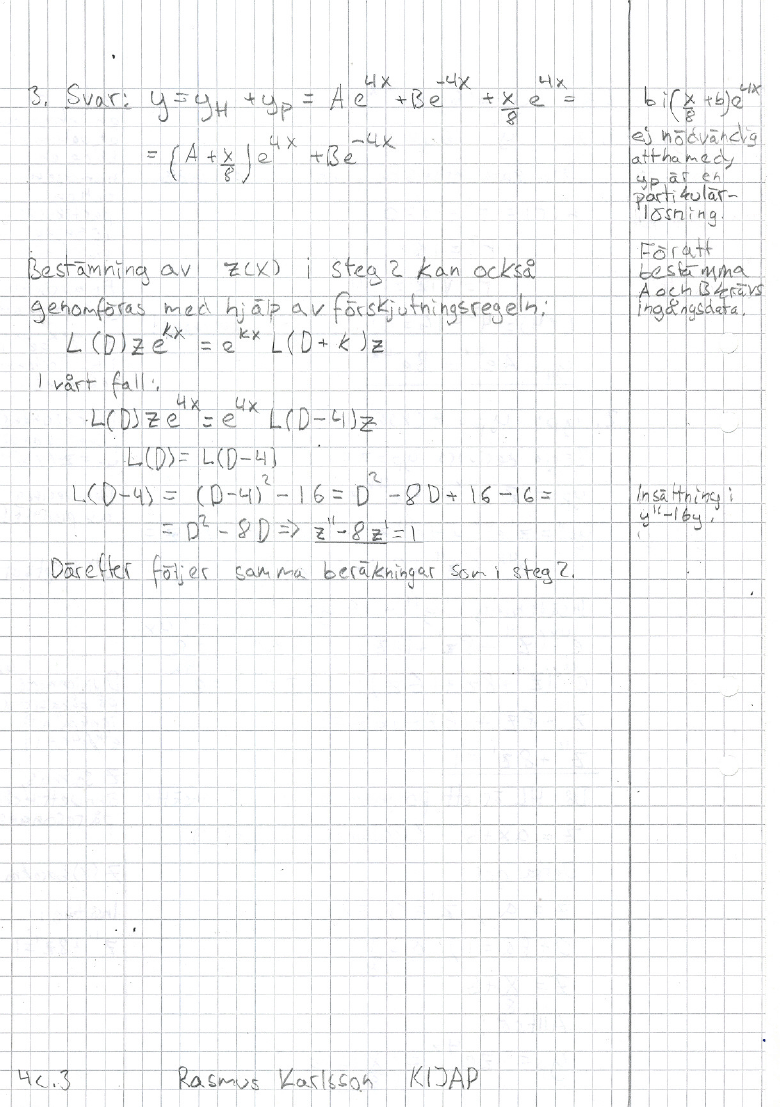 3. Svar: y = y_H + y_p = A e^{4x} + B e^{-4x} + x/8 e^{4x} =
= (A + x/8) e^{4x} + B e^{-4x}
b i (x/8 + b) e^{4x}
ej nödvändig
att ha med y
yp är en
partikulär-
lösning.
För att
bestämma
A och B krävs
ingångsdata.
Bestämning av z(x) i steg 2 kan också
genomföras med hjälp av förskjutningsregeln:
L(D) z e^{kx} = e^{kx} L(D + k) z
I vårt fall:
L(D) z e^{4x} = e^{4x} L(D-4) z
L(D) = L(D-4)
L(D-4) = (D-4)^2 - 16 = D^2 - 8D + 16 - 16 =
= D^2 - 8D => z'' - 8z' = 1
Insättning i
y'' - 16y.
Därefter följer samma beräkningar som i steg 2.
4c.3 Rasmus Karlsson KIJAP